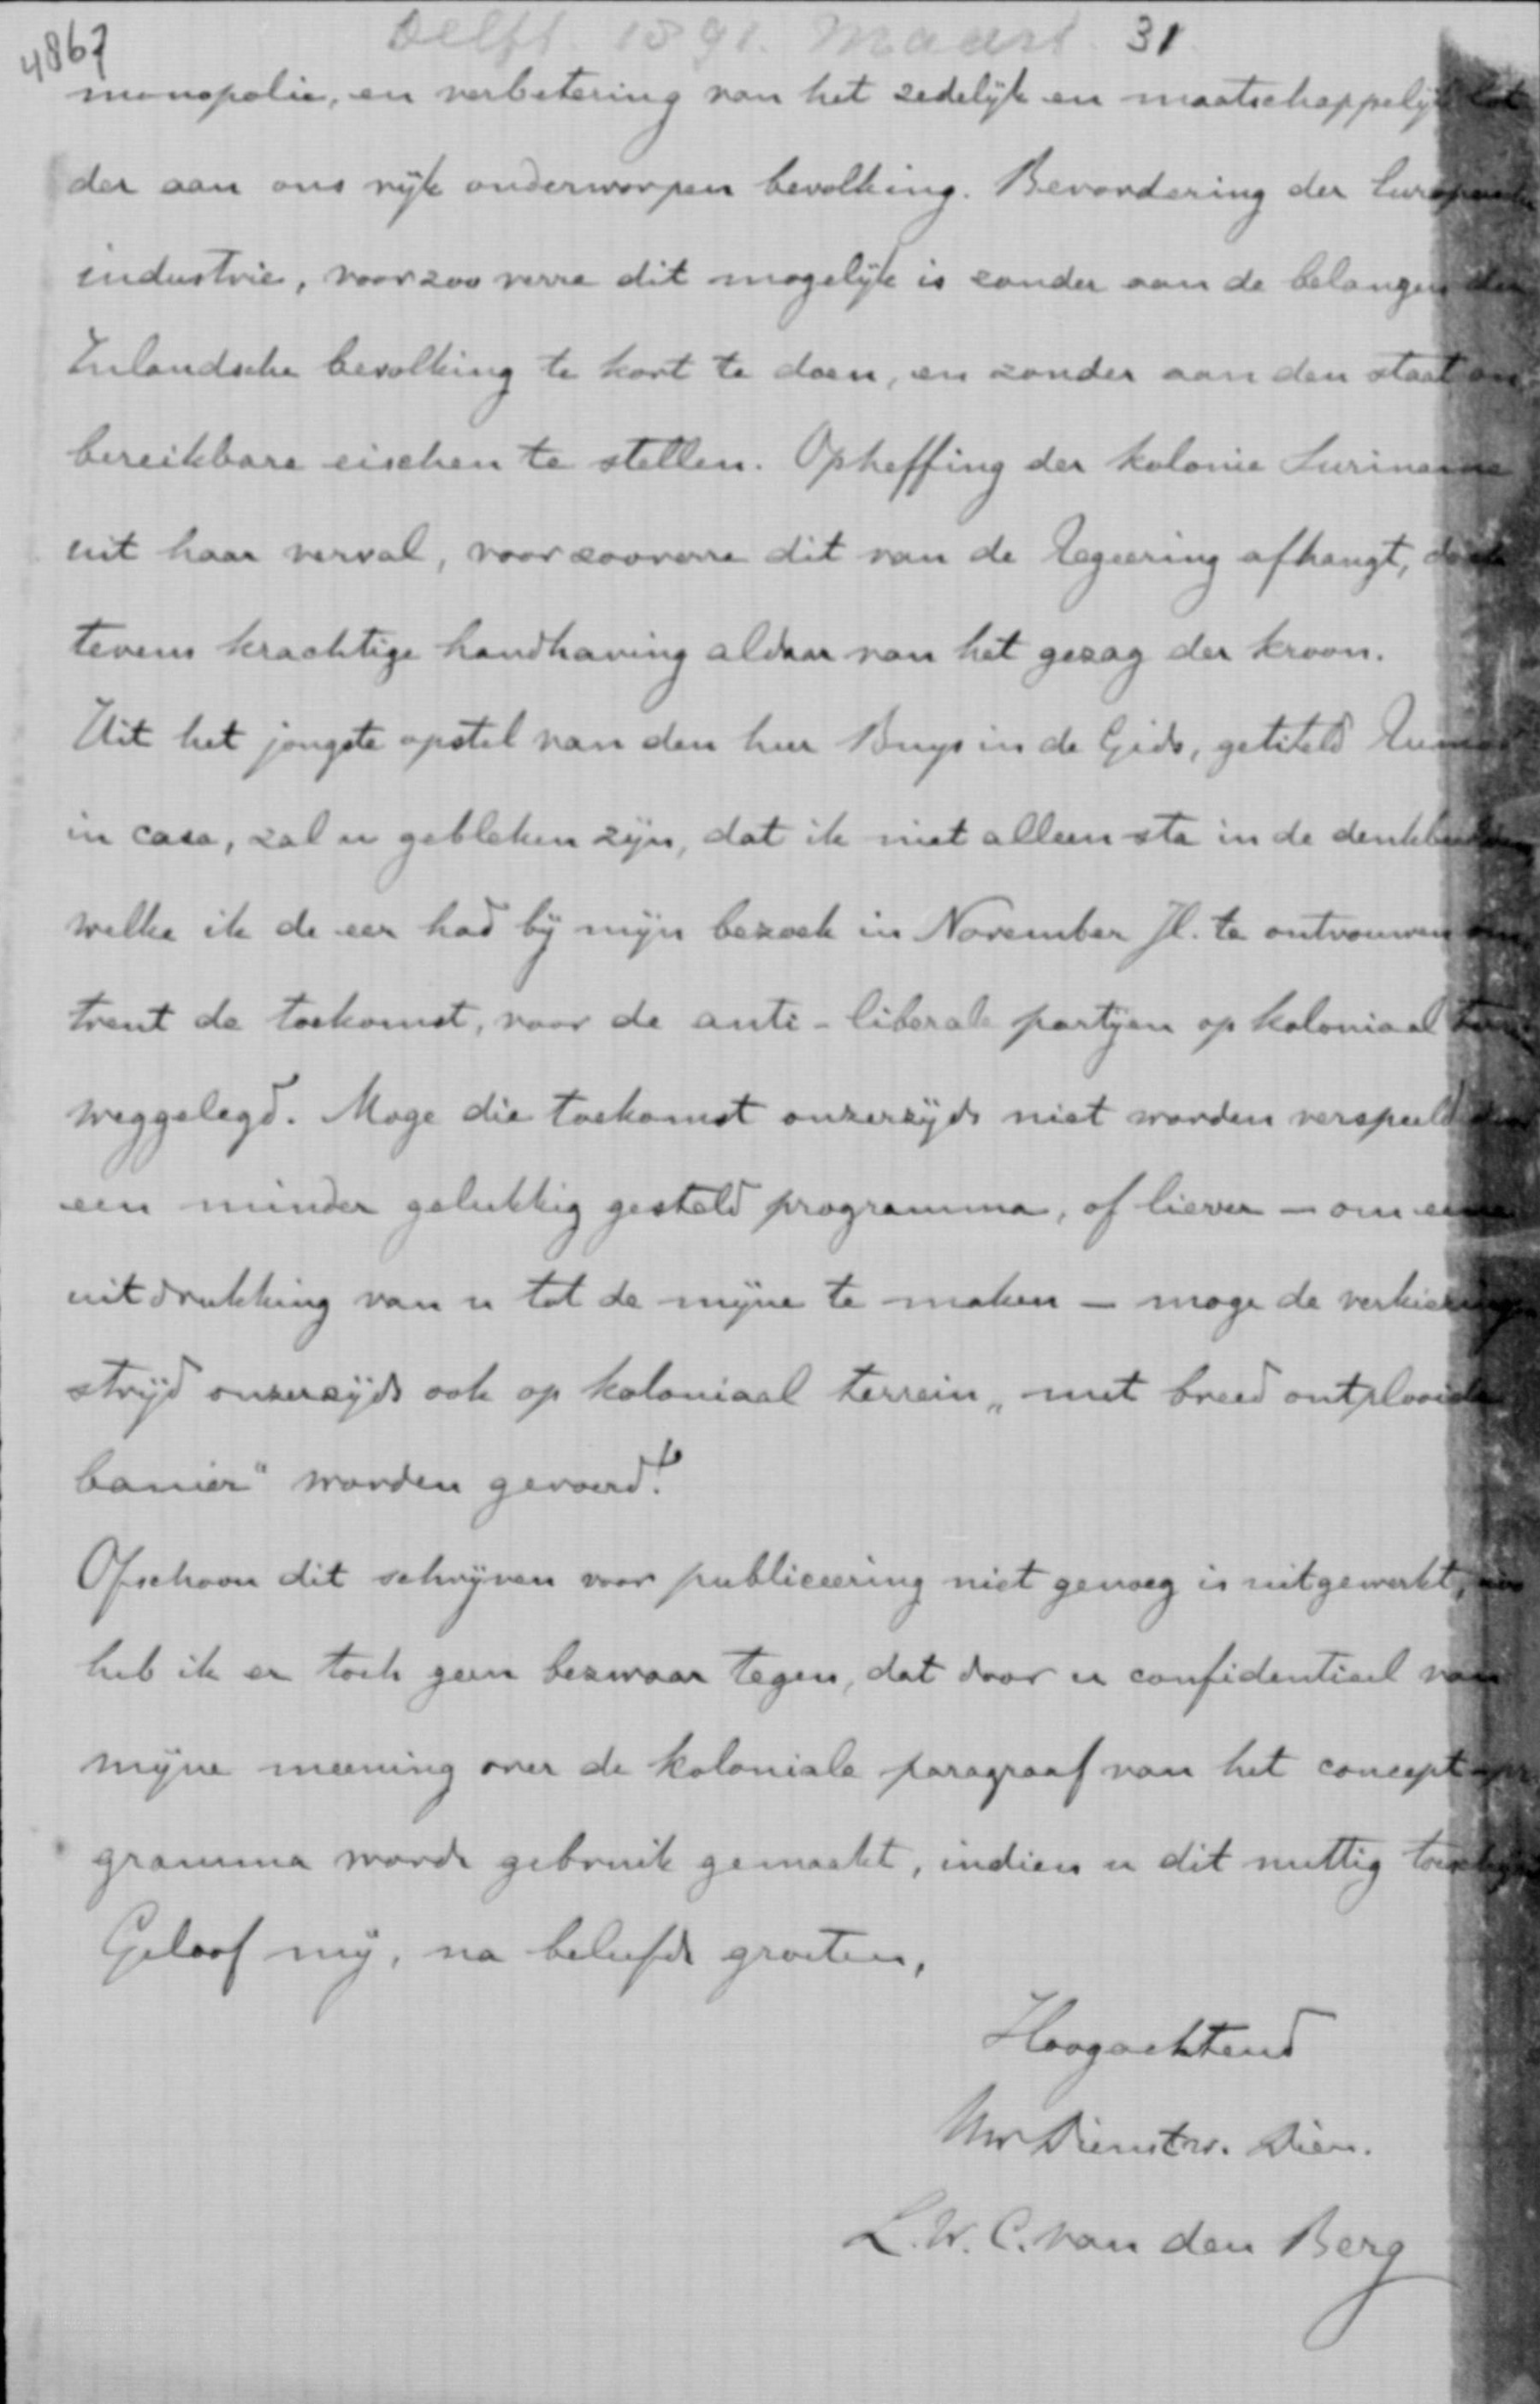 4867
Delft. 1891. Maart. 31
monopolie, en verbetering van het zedelijk en maatschappelijk lot
der aan ons rijk onderworpen bevolking. Bevordering der Europeesche
industrie, voorzoo verre dit mogelijk is zonder aan de belangen der
Inlandsche bevolking te kort te doen, en zonder aan den staat on
bereikbare eischen te stellen. Opheffing der kolonie Suriname
uit haar verval, voorzooverre dit van de Regeering afhangt, doch
tevens krachtige handhaving aldaar van het gezag der kroon.
Uit het jongste opstel van den heer Buys in de Gids, getiteld Rumor
in casa, zal u gebleken zijn, dat ik niet alleen sta in de denkbeelden
welke ik de eer had bij mijn bezoek in November Jl. te ontvouwen om
trent de toekomst, voor de anti-liberale partijen op koloniaal
weggelegd. Moge die toekomst onzerzijds niet worden verspeeld door
een minder gelukkig gesteld programma, of liever - om eene
uitdrukking van u tot de mijne te maken - moge de verkiezings
strijd onzerzijds ook op koloniaal terrein „met breed ontplooide
banier" worden gevoerd!
Ofschoon dit schrijven voor publiceering niet genoeg is uitgewerkt,
heb ik er toch geen bezwaar tegen, dat door u confidentieel van
mijne meening over de koloniale paragraaf van het concept-pr
gramma worde gebruik gemaakt, indien u dit nuttig toeschijnt
Geloof mij, na beleefde groeten,
Hoogachtend
Uw Dienstw. Dien.
L. W. C. van den Berg